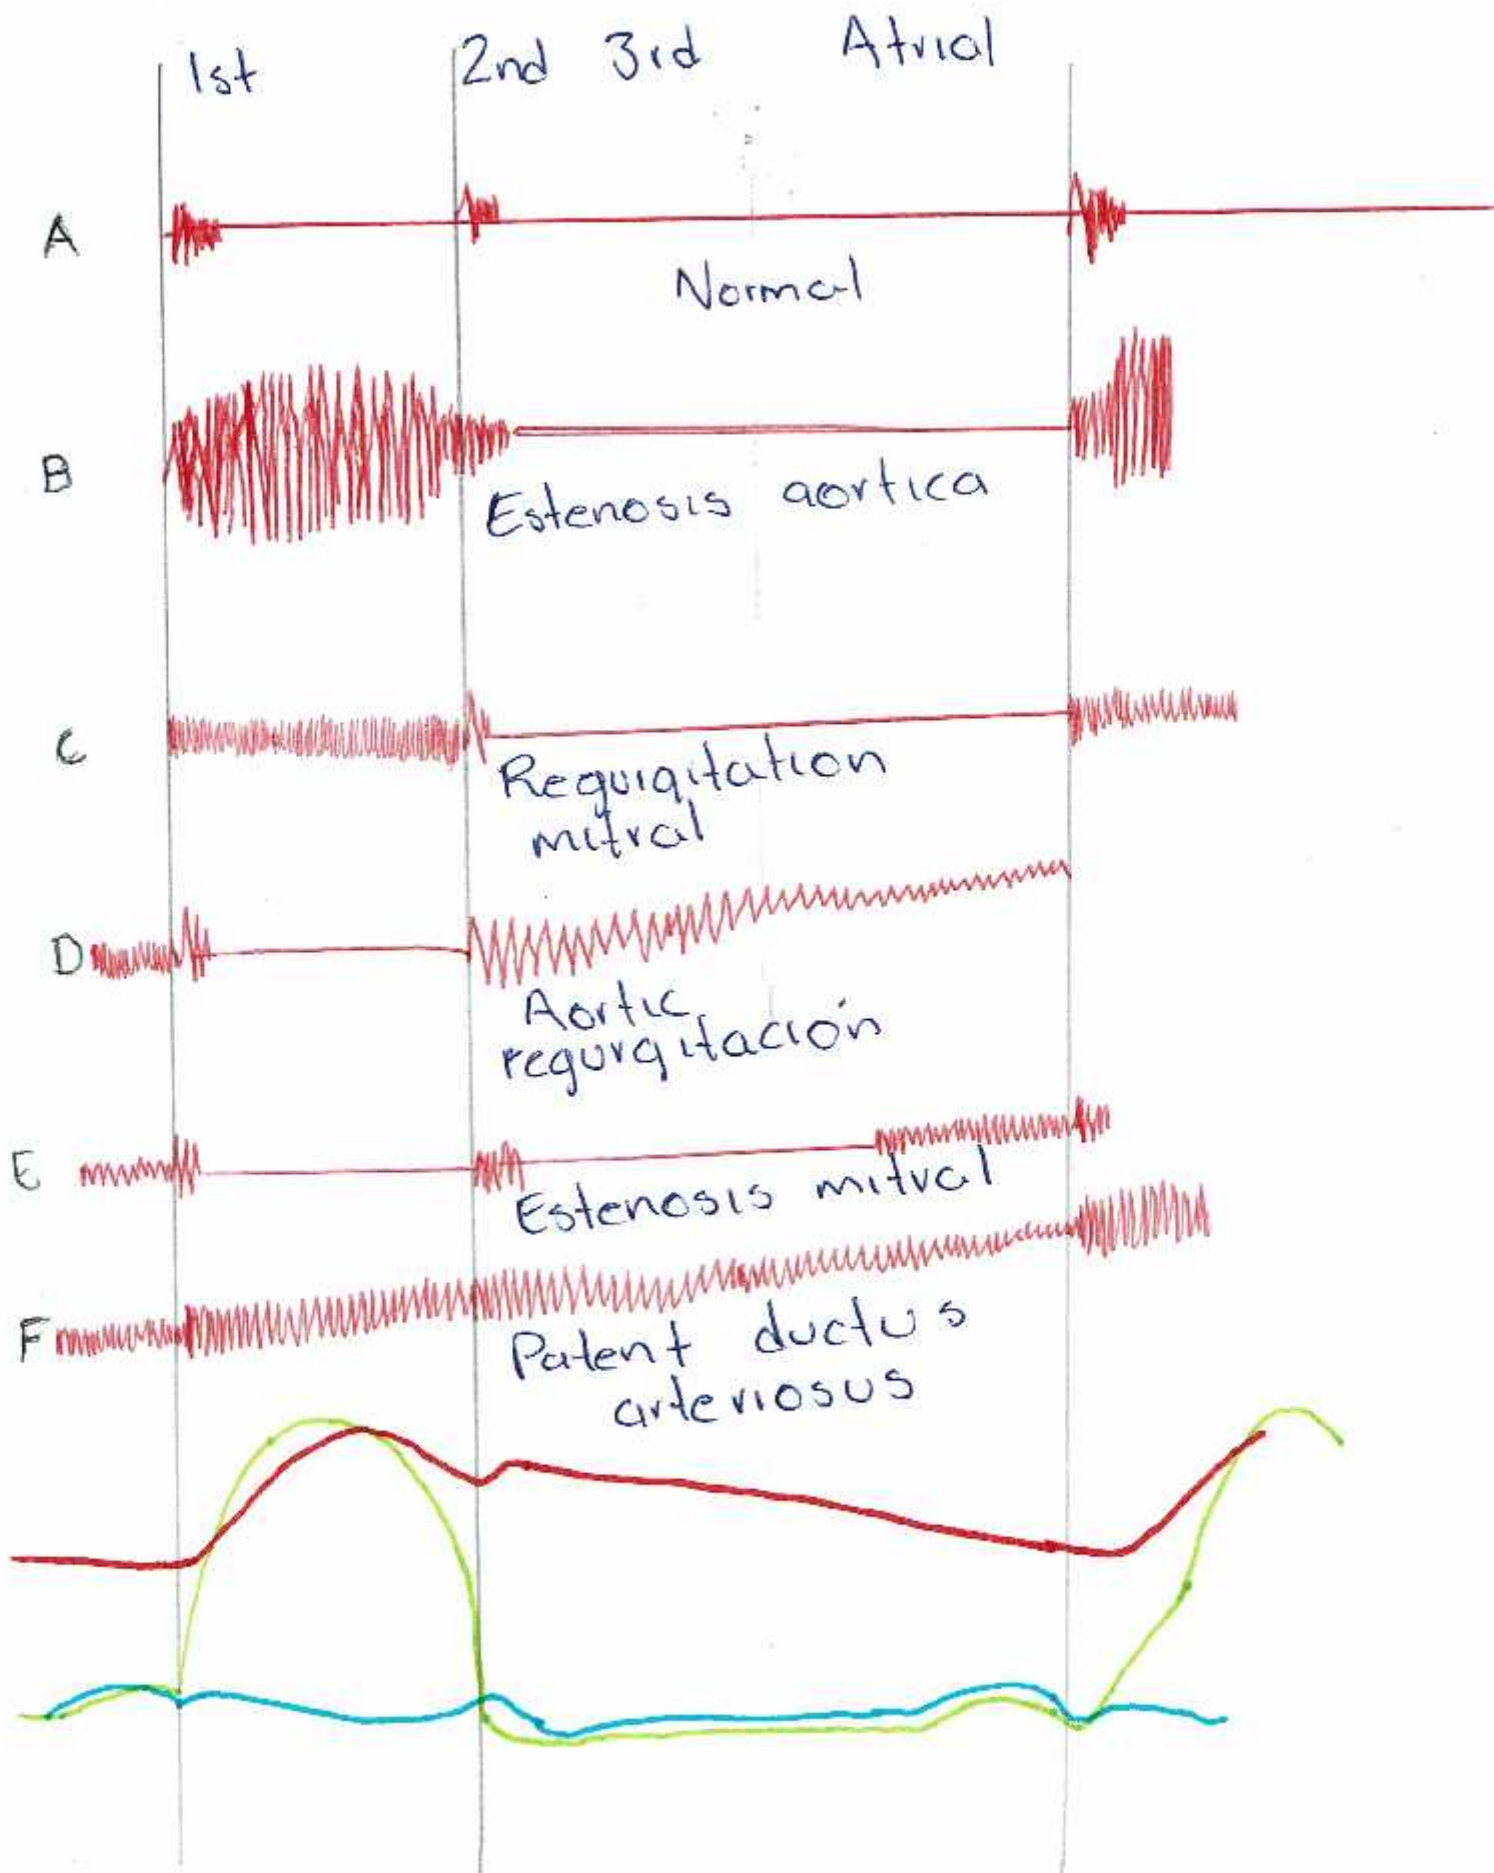 1st 2nd 3rd Atrial
A
Normal
B
Estenosis aortica
C
Reguigitation
mitral
D
Aortic
regurgitación
E
Estenosis mitral
F
Patent ductus
arteriosus